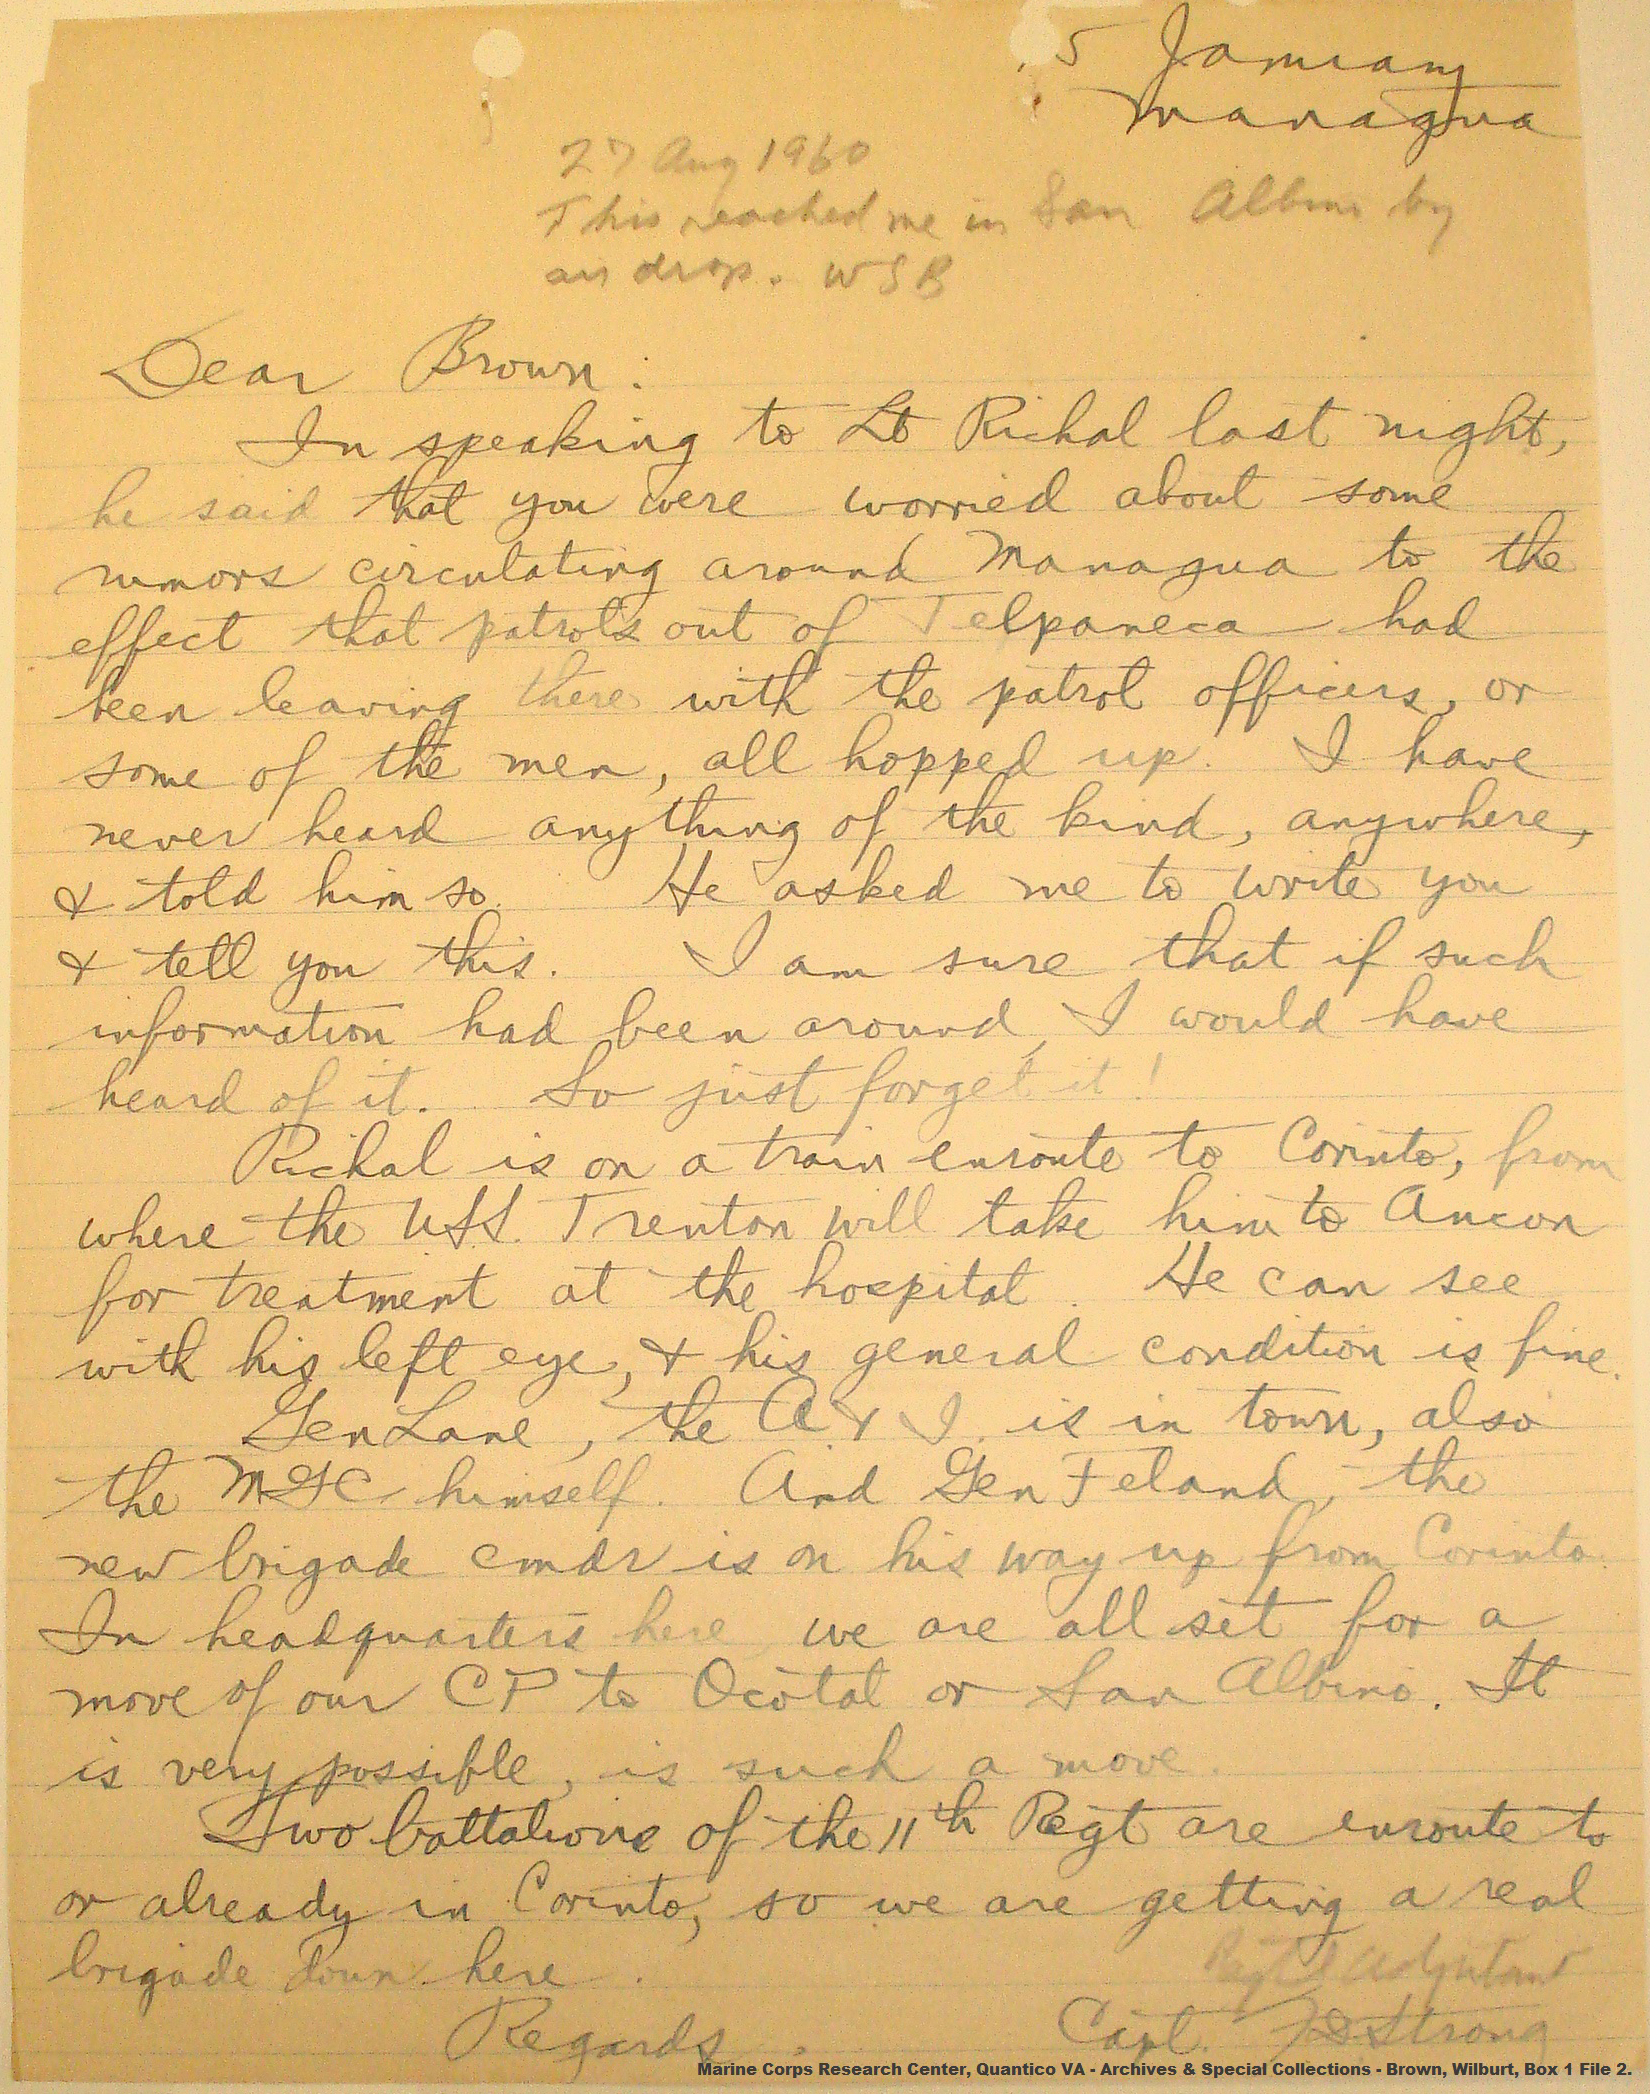 15 January
Managua
27 Aug 1960
This reached me in San Albino by
air drop. WSB
Dear Brown:
In speaking to Lt Richal last night,
he said that you were worried about some
rumors circulating around Managua to the
effect that patrols out of Telpaneca had
been leaving there with the patrol officers, or
some of the men, all hopped up. I have
never heard anything of the kind, anywhere,
& told him so. He asked me to write you
& tell you this. I am sure that if such
information had been around, I would have
heard of it. So just forget it!
Richal is on a train enroute to Corinto, from
where the USS. Trenton will take him to Ancon
for treatment at the hospital. He can see
with his left eye, & his general condition is fine.
Gen Lane, the A & I. is in town, also
the MGC himself. And Gen Feland, the
new brigade cmdr is on his way up from Corinto.
In headquarters here we are all set for a
move of our CP to Ocotal or San Albino. It
is very possible, is such a move.
Two battalions of the 11th Regt are enroute to
or already in Corinto, so we are getting a real
brigade down here.
Regt'l Adjutant
Regards. Capt. FDStrong
Marine Corps Research Center, Quantico VA - Archives & Special Collections - Brown, Wilburt, Box 1 File 2.